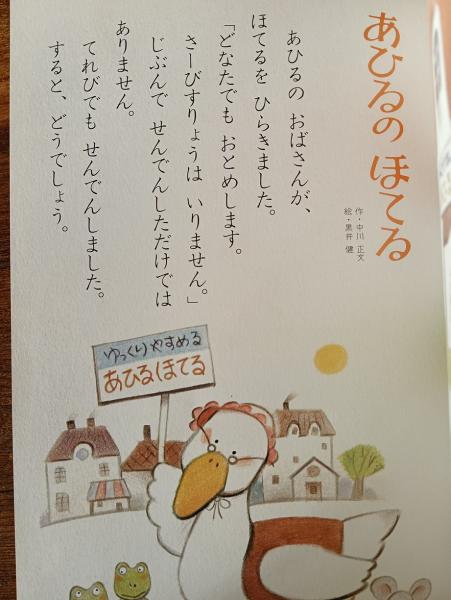 あひるの ほてる
作・中川 正文
絵・黒井 健
あひるの おばさんが、
ほてるを ひらきました。
「どなたでも おとめします。
さーびすりょうは いりません。」
じぶんで せんでんしただけでは
ありません。
てれびでも せんでんしました。
すると、どうでしょう。
ゆっくりやすめる
あひるほてる